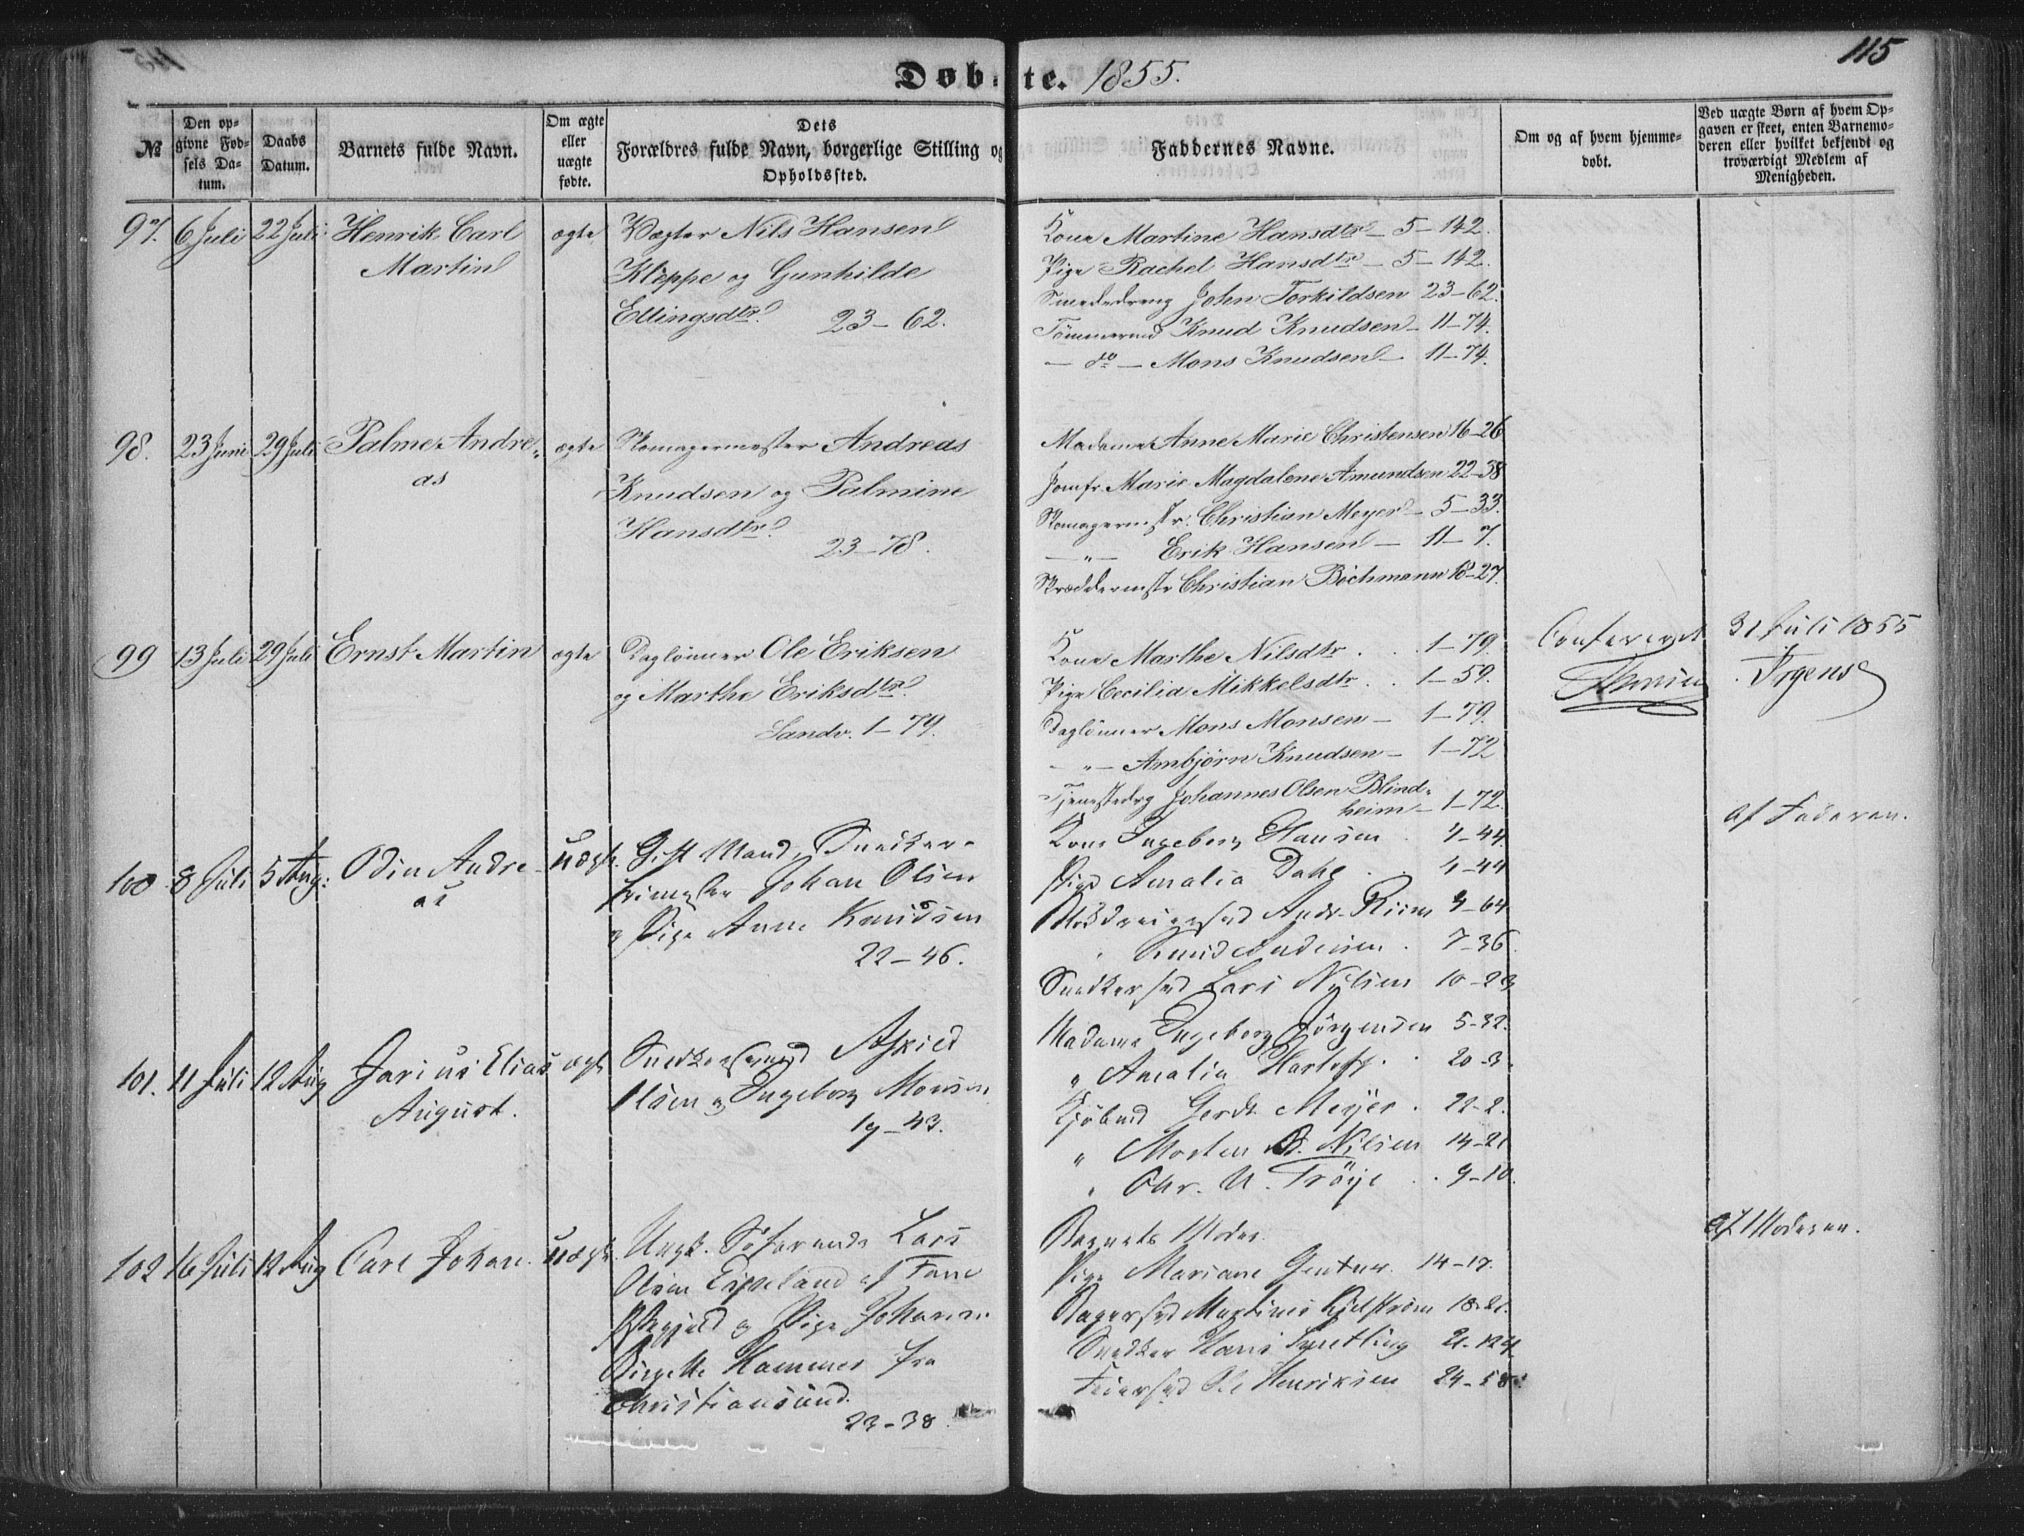 115
Døbte. 1855.
№
Den opgivne Fødsels Datum.
Daabs Datum.
Barnets fulde Navn.
Om ægte eller uægte fødte.
Dets Forældres fulde Navn, borgerlige Stilling og Opholdssted.
Faddernes Navne.
Om og af hvem hjemmedøbt.
Ved uægte Børn af hvem Opgaven er skeet, enten Barnemoderen eller hvilket bekjendt og troværdigt Medlem af Menigheden.
97. 6 Juli 22 Juli Henrik Carl ægte Vægter Nils Hansen
Martin Kleppe og Gunhilde
Ellingsdtr.
23-62.
Kone Martine Hansdtr - 5-142.
Pige Rachel Hansdtr - 5-142.
Smededreng John Torkildsen 23-62.
Tømmermd Knud Knudsen - 11-74.
- do - Mons Knudsen - 11-74.
98. 23 Juni 29 Juli Palme Andre- ægte Skomagermester Andreas
as Knudsen og Palmine
Hansdtr.
23-78.
Madame Anne Marie Christensen 16-26
Jomfr. Marie Magdalene Amundsen 22-38
Skomagermstr. Christian Meyer - 5-33.
- " - Erik Hansen - 11-7.
Skræddermstr Christian Bøchmann 18-27.
99 13 Juli 29 Juli Ernst Martin ægte Daglønner Ole Eriksen
og Marthe Eriksdtr.
Sandv. 1-79.
Kone Marthe Nilsdtr . . 1-79.
Pige Cecilia Mikkelsdtr . . 1-59.
Daglønner Mons Monsen - 1-79.
- " - Ambjørn Knudsen - 1-72
Tjenestedrg Johannes Olsen Blind-
heim - 1-72.
Confereret 31 Juli 1855
100 8 Juli 5 Aug: Odin Andre- uægte. Gift Mand, Snedker-
as Johan Olsen
og Pige Anne Knudsen
22-46.
Kone Ingeborg Hansen . 4-44
Pige Amalia Dahl . . 4-44
Andr. Riim 4-64
" Knud Andersen . 7-36.
Snedkersvd Lars Nilsen 10-23
af Faderen.
101. 11 Juli 12 Aug Jarius Elias ægte Snedkersvend Askild
August. Olsen og Ingeborg Monsen
19-43.
Madame Ingeborg Jørgensen 5-32.
" Amalia Hartvig . . 20-3.
Kjøbmd Gerdt Meyer . 22-2.
" Morten B. Nilsen 14-21
" Chr. U. Trøye . . 9-10.
102 16 Juli 12 Aug Carl Johan. uægte. Ungk. Søfarende Lars
Olsen Espeland af Fane
Præstegjeld og Pige Johanne
Birgitte Hammer fra
Christiansund.
23-38.
Barnets Moder
Pige Mariane Gentner. 14-17.
Bagersvd Martinus Kjelstrøm 18-21.
Snedker Hans 21-124
Ole Henriksen 24-58.
af Moderen.